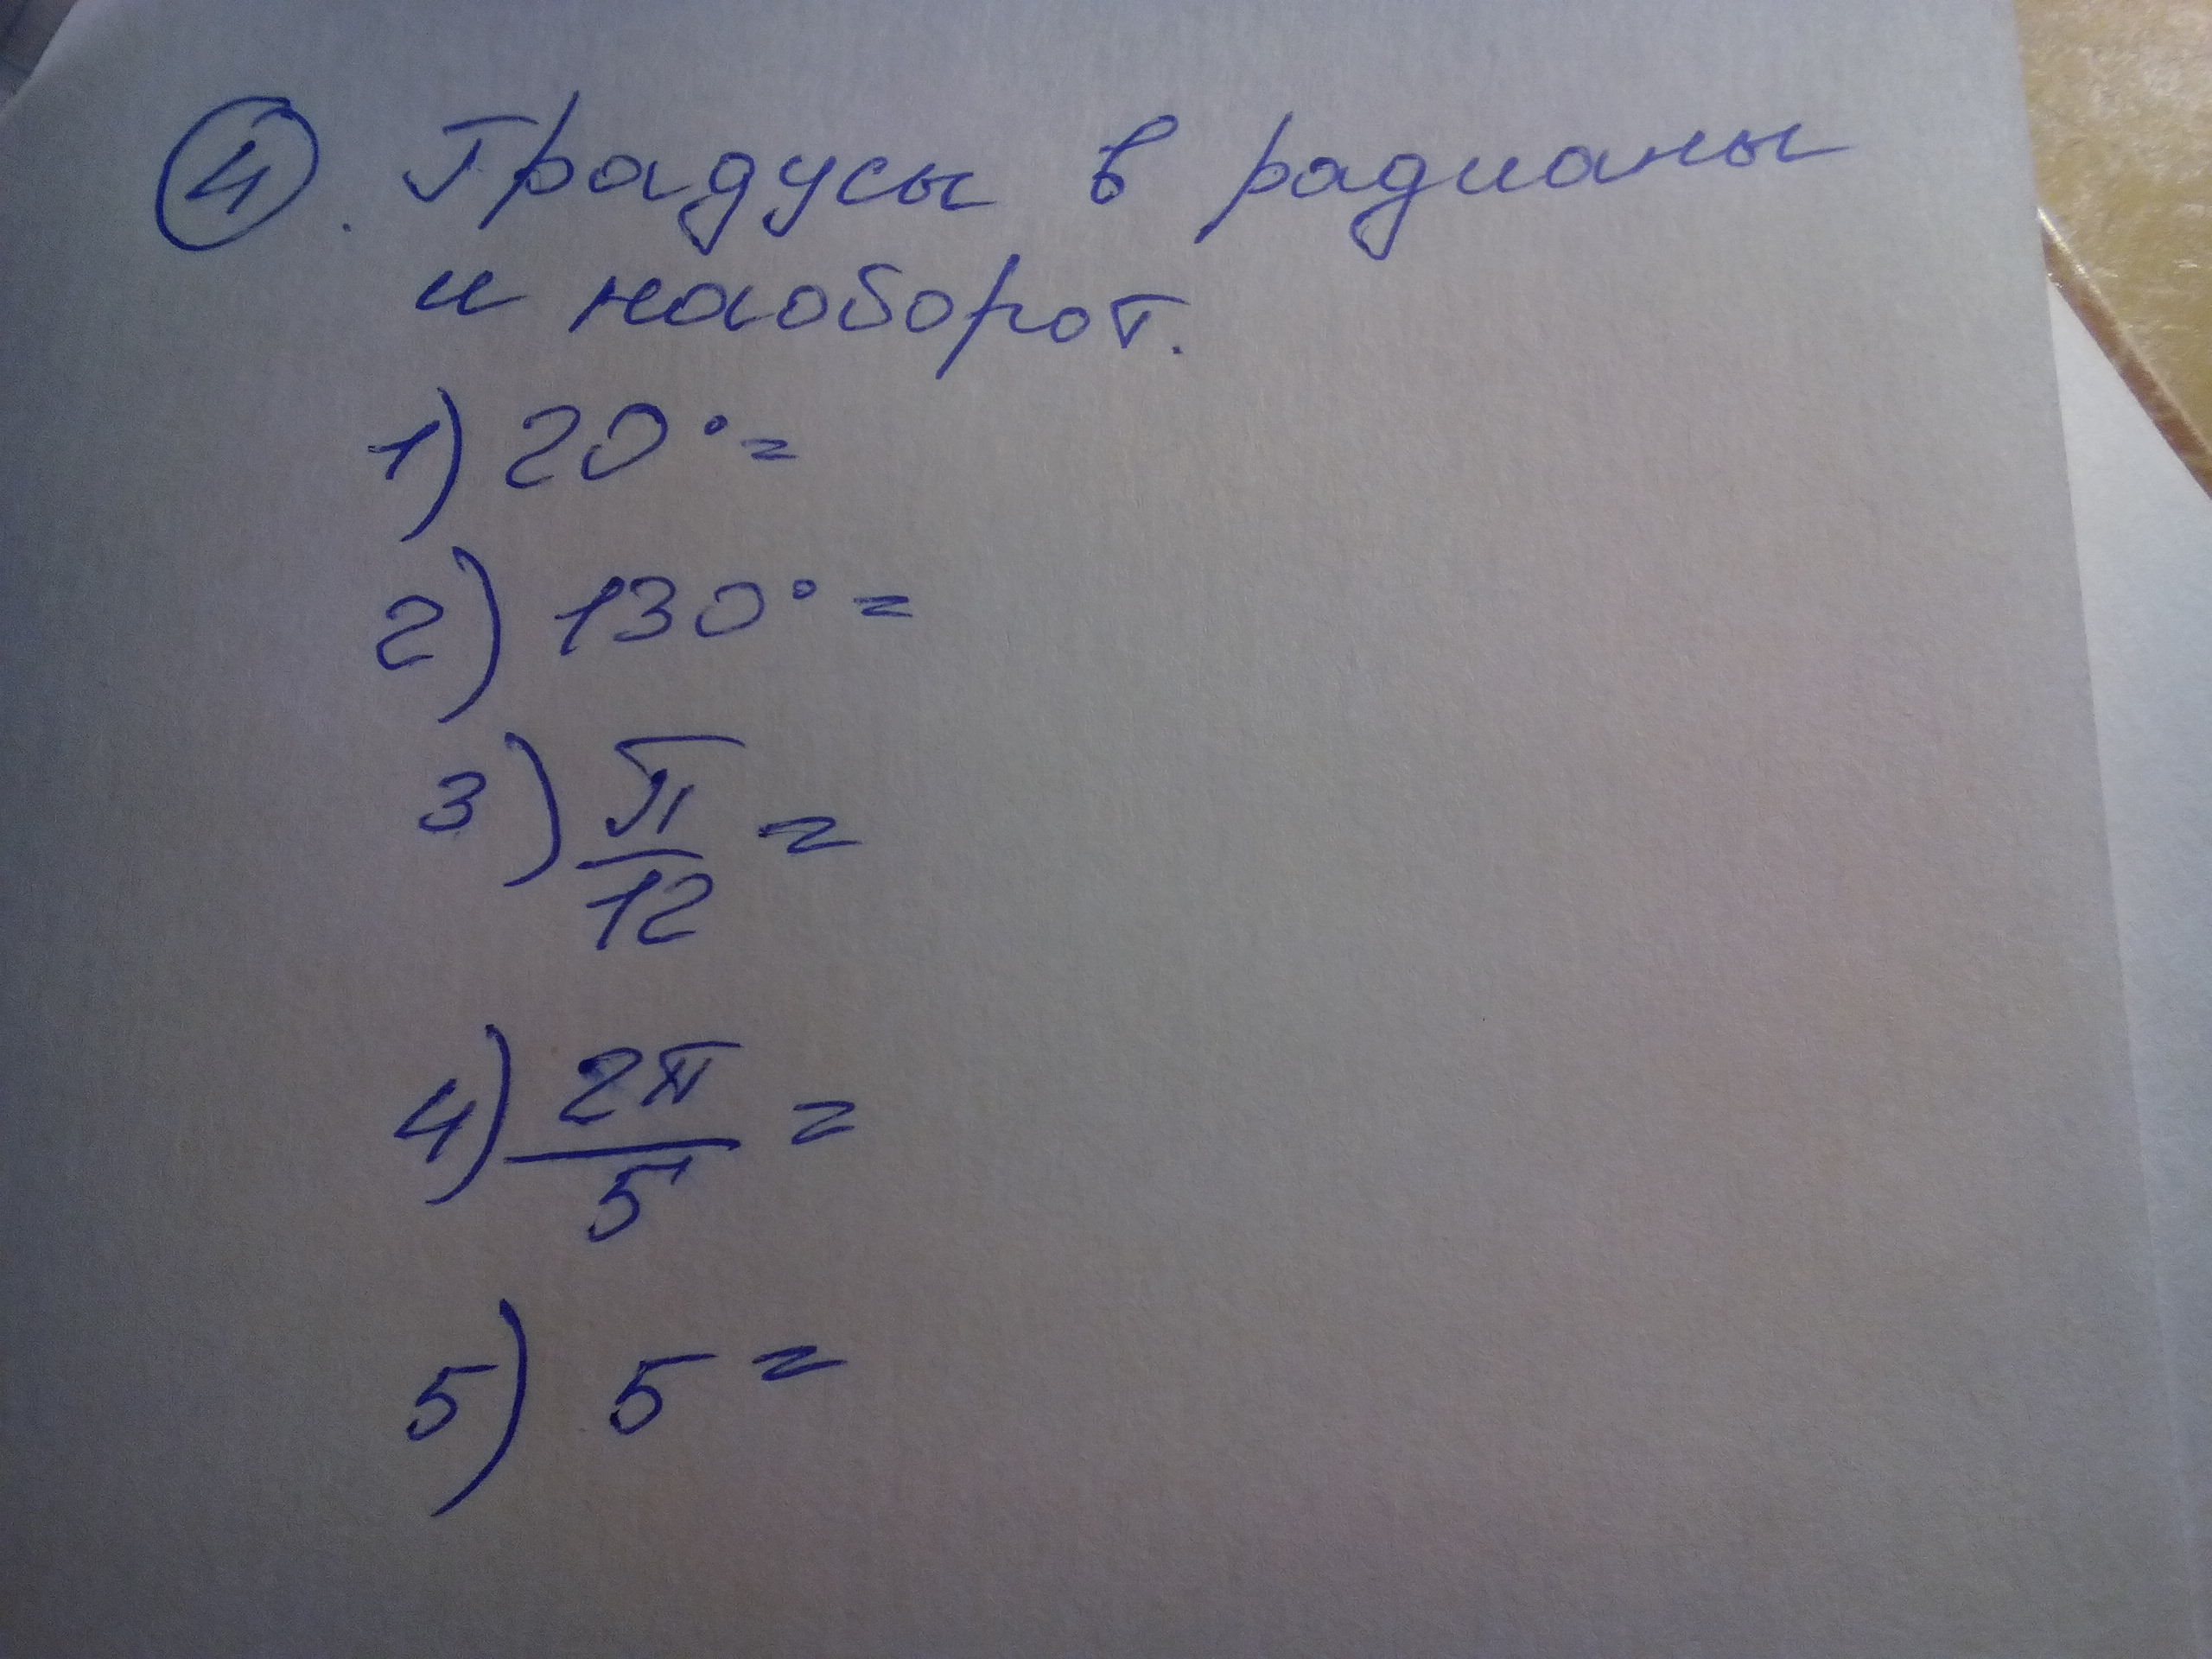 4. Градусы в радианы
и наоборот.
1) 20° =
2) 130° =
3) π/12 =
4) 2π/5 =
5) 5 =